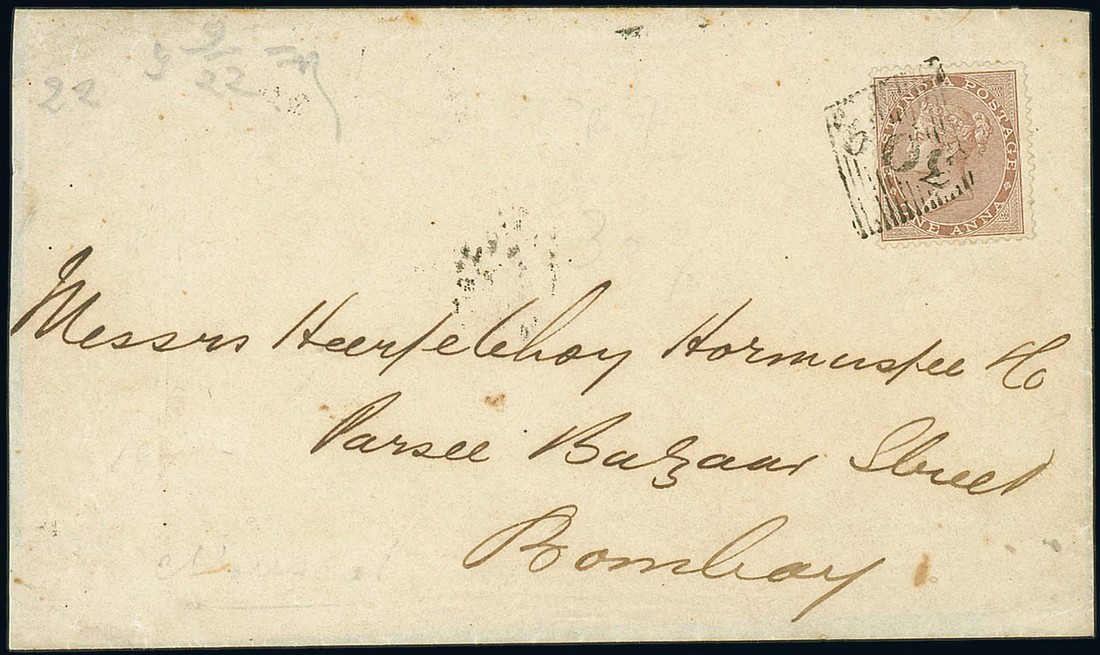 22
9
22
EAST INDIA POSTAGE
ONE ANNA
Messrs Heerjeebhoy Hormusjee & Co
Parsee Bazaar Street
Bombay